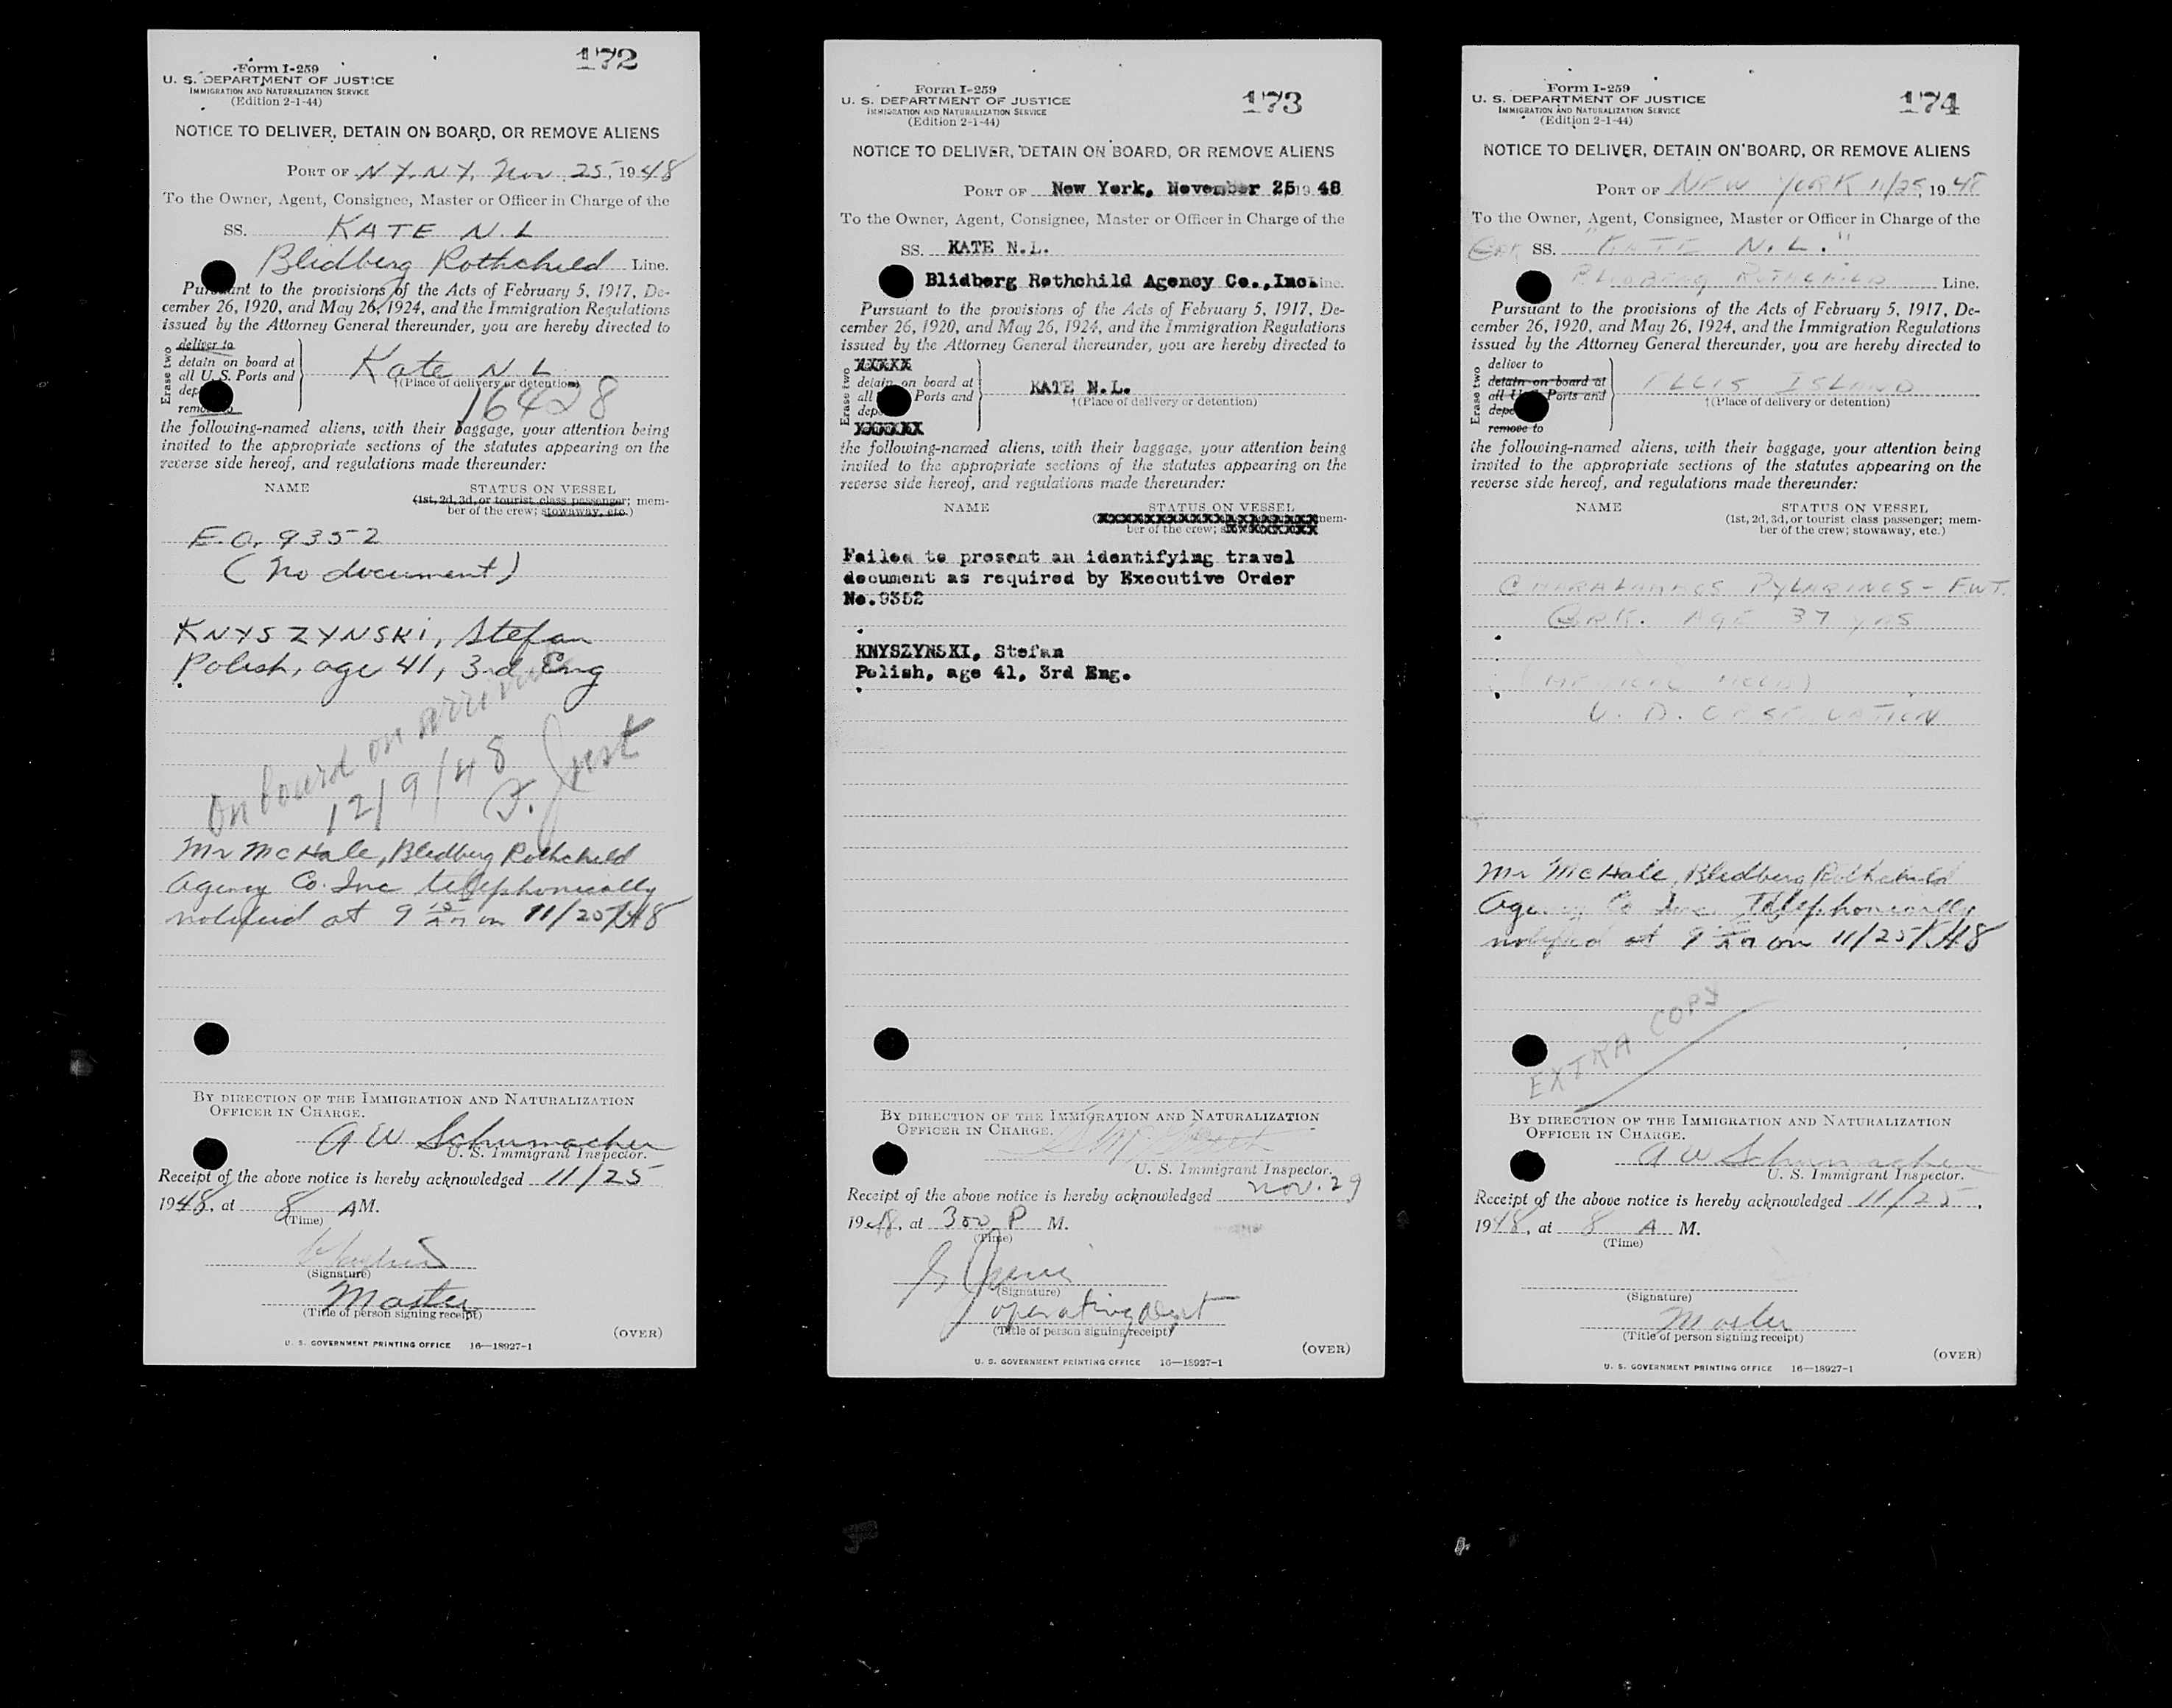 172
Form I-259
U. S. DEPARTMENT OF JUSTICE
IMMIGRATION AND NATURALIZATION SERVICE
(Edition 2-1-44)
NOTICE TO DELIVER, DETAIN ON BOARD, OR REMOVE ALIENS
PORT OF N.Y. N.Y. Nov. 25, 1948
To the Owner, Agent, Consignee, Master or Officer in Charge of the
SS. KATE N.L
Blidberg Rothchild Line.
Pursuant to the provisions of the Acts of February 5, 1917, De-
cember 26, 1920, and May 26, 1924, and the Immigration Regulations
issued by the Attorney General thereunder, you are hereby directed to
Erase two
deliver to
detain on board at
all U.S. Ports and
Kate N L
†(Place of delivery or detention)
16428
the following-named aliens, with their baggage, your attention being
invited to the appropriate sections of the statutes appearing on the
reverse side hereof, and regulations made thereunder:
NAME STATUS ON VESSEL
(1st, 2d, 3d, or tourist class passenger; mem-
ber of the crew; stowaway, etc.)
E.O. 9352
(No document)
KNYSZYNSKI, Stefan
Polish, age 41, 3rd Eng
On board on arrival
12/9/48
Mr McHale, Bledberg Rothchild
Agency Co. Inc telephonically
notified at 9 on 11/25/48
BY DIRECTION OF THE IMMIGRATION AND NATURALIZATION
OFFICER IN CHARGE.
A W Schumacher
U. S. Immigrant Inspector.
Receipt of the above notice is hereby acknowledged 11/25
1948, at 8 AM.
(Time)
(Signature)
Master
(Title of person signing receipt)
(OVER)
U. S. GOVERNMENT PRINTING OFFICE 16—18927-1
173
Form I-259
U. S. DEPARTMENT OF JUSTICE
IMMIGRATION AND NATURALIZATION SERVICE
(Edition 2-1-44)
NOTICE TO DELIVER, DETAIN ON BOARD, OR REMOVE ALIENS
PORT OF New York, November 25 19 48
To the Owner, Agent, Consignee, Master or Officer in Charge of the
SS. KATE N.L.
Blidberg Rothchild Agency Co.,Inc. Line.
Pursuant to the provisions of the Acts of February 5, 1917, De-
cember 26, 1920, and May 26, 1924, and the Immigration Regulations
issued by the Attorney General thereunder, you are hereby directed to
Erase two
XXXXX
detain on board at
all Ports and
KATE N.L.
†(Place of delivery or detention)
XXXXXX
the following-named aliens, with their baggage, your attention being
invited to the appropriate sections of the statutes appearing on the
reverse side hereof, and regulations made thereunder:
NAME STATUS ON VESSEL
mem-
ber of the crew;
Failed to present an identifying travel
document as required by Executive Order
No.9352
KNYSZYNSKI, Stefan
Polish, age 41, 3rd Eng.
BY DIRECTION OF THE IMMIGRATION AND NATURALIZATION
OFFICER IN CHARGE.
U. S. Immigrant Inspector.
Receipt of the above notice is hereby acknowledged Nov. 29
1948, at 300 P M.
(Time)
(Signature)
operating Dept
(Title of person signing receipt)
(OVER)
U. S. GOVERNMENT PRINTING OFFICE 16—18927-1
174
Form I-259
U. S. DEPARTMENT OF JUSTICE
IMMIGRATION AND NATURALIZATION SERVICE
(Edition 2-1-44)
NOTICE TO DELIVER, DETAIN ON BOARD, OR REMOVE ALIENS
PORT OF NEW YORK 11/25, 1948
To the Owner, Agent, Consignee, Master or Officer in Charge of the
SS. "KATE N.L."
BLIDBERG ROTHCHILD Line.
Pursuant to the provisions of the Acts of February 5, 1917, De-
cember 26, 1920, and May 26, 1924, and the Immigration Regulations
issued by the Attorney General thereunder, you are hereby directed to
Erase two
deliver to
detain on board at
all U.S. Ports and
ELLIS ISLAND
†(Place of delivery or detention)
remove to
the following-named aliens, with their baggage, your attention being
invited to the appropriate sections of the statutes appearing on the
reverse side hereof, and regulations made thereunder:
NAME STATUS ON VESSEL
(1st, 2d, 3d, or tourist class passenger; mem-
ber of the crew; stowaway, etc.)
CHARALAMBOS PYLARINOS - FWT.
GRK. AGE 37 yrs
(MEDICAL HOLD)
V. D. OBSERVATION
Mr McHale, Bledberg Rothchild
Agency Co Inc. Telephonically
notified at 9 on 11/25/48
EXTRA COPY
BY DIRECTION OF THE IMMIGRATION AND NATURALIZATION
OFFICER IN CHARGE.
A W Schumacher
U. S. Immigrant Inspector.
Receipt of the above notice is hereby acknowledged 11/25,
1948, at 8 A M.
(Time)
(Signature)
Master
(Title of person signing receipt)
(OVER)
U. S. GOVERNMENT PRINTING OFFICE 16—18927-1